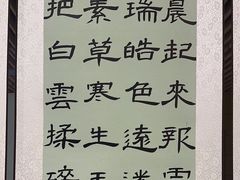 晨起來報雪
瑞皓色遠迷
素草寒生
把白雲揉碎